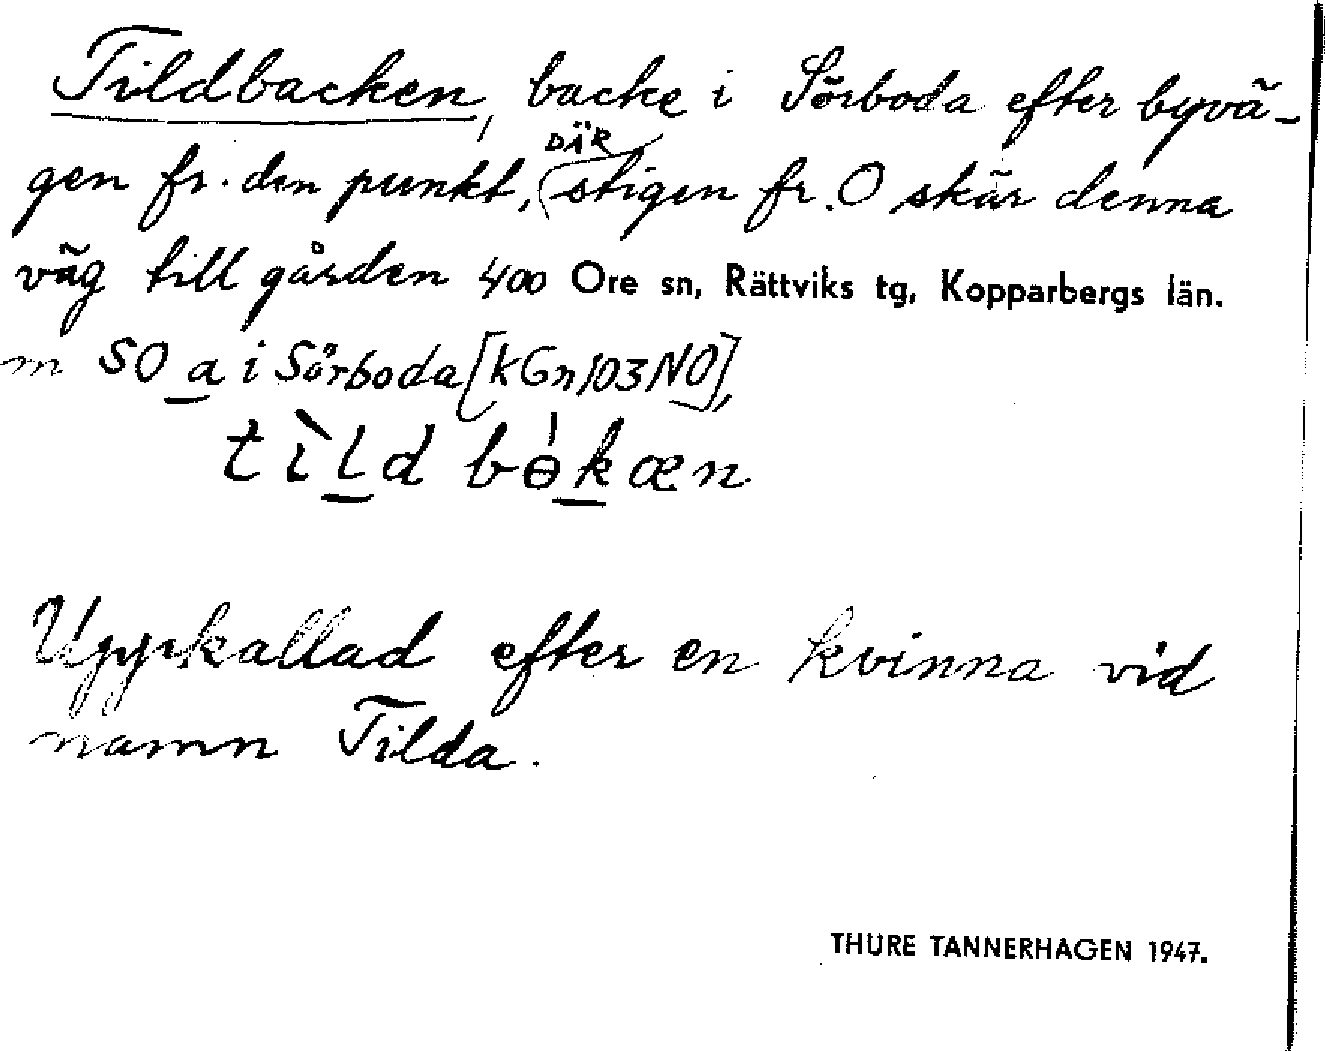 Tildbacken, backe i Sörboda efter byvä-
gen fr. den punkt, DÄR stigen fr. O skär denna
väg till gården 400 Ore sn, Rättviks tg, Kopparbergs län.
m SO a i Sörboda [kGn 103 NO],
tìld bɵ̀kæn
Uppkallad efter en kvinna vid
namn Tilda.
THURE TANNERHAGEN 1947.